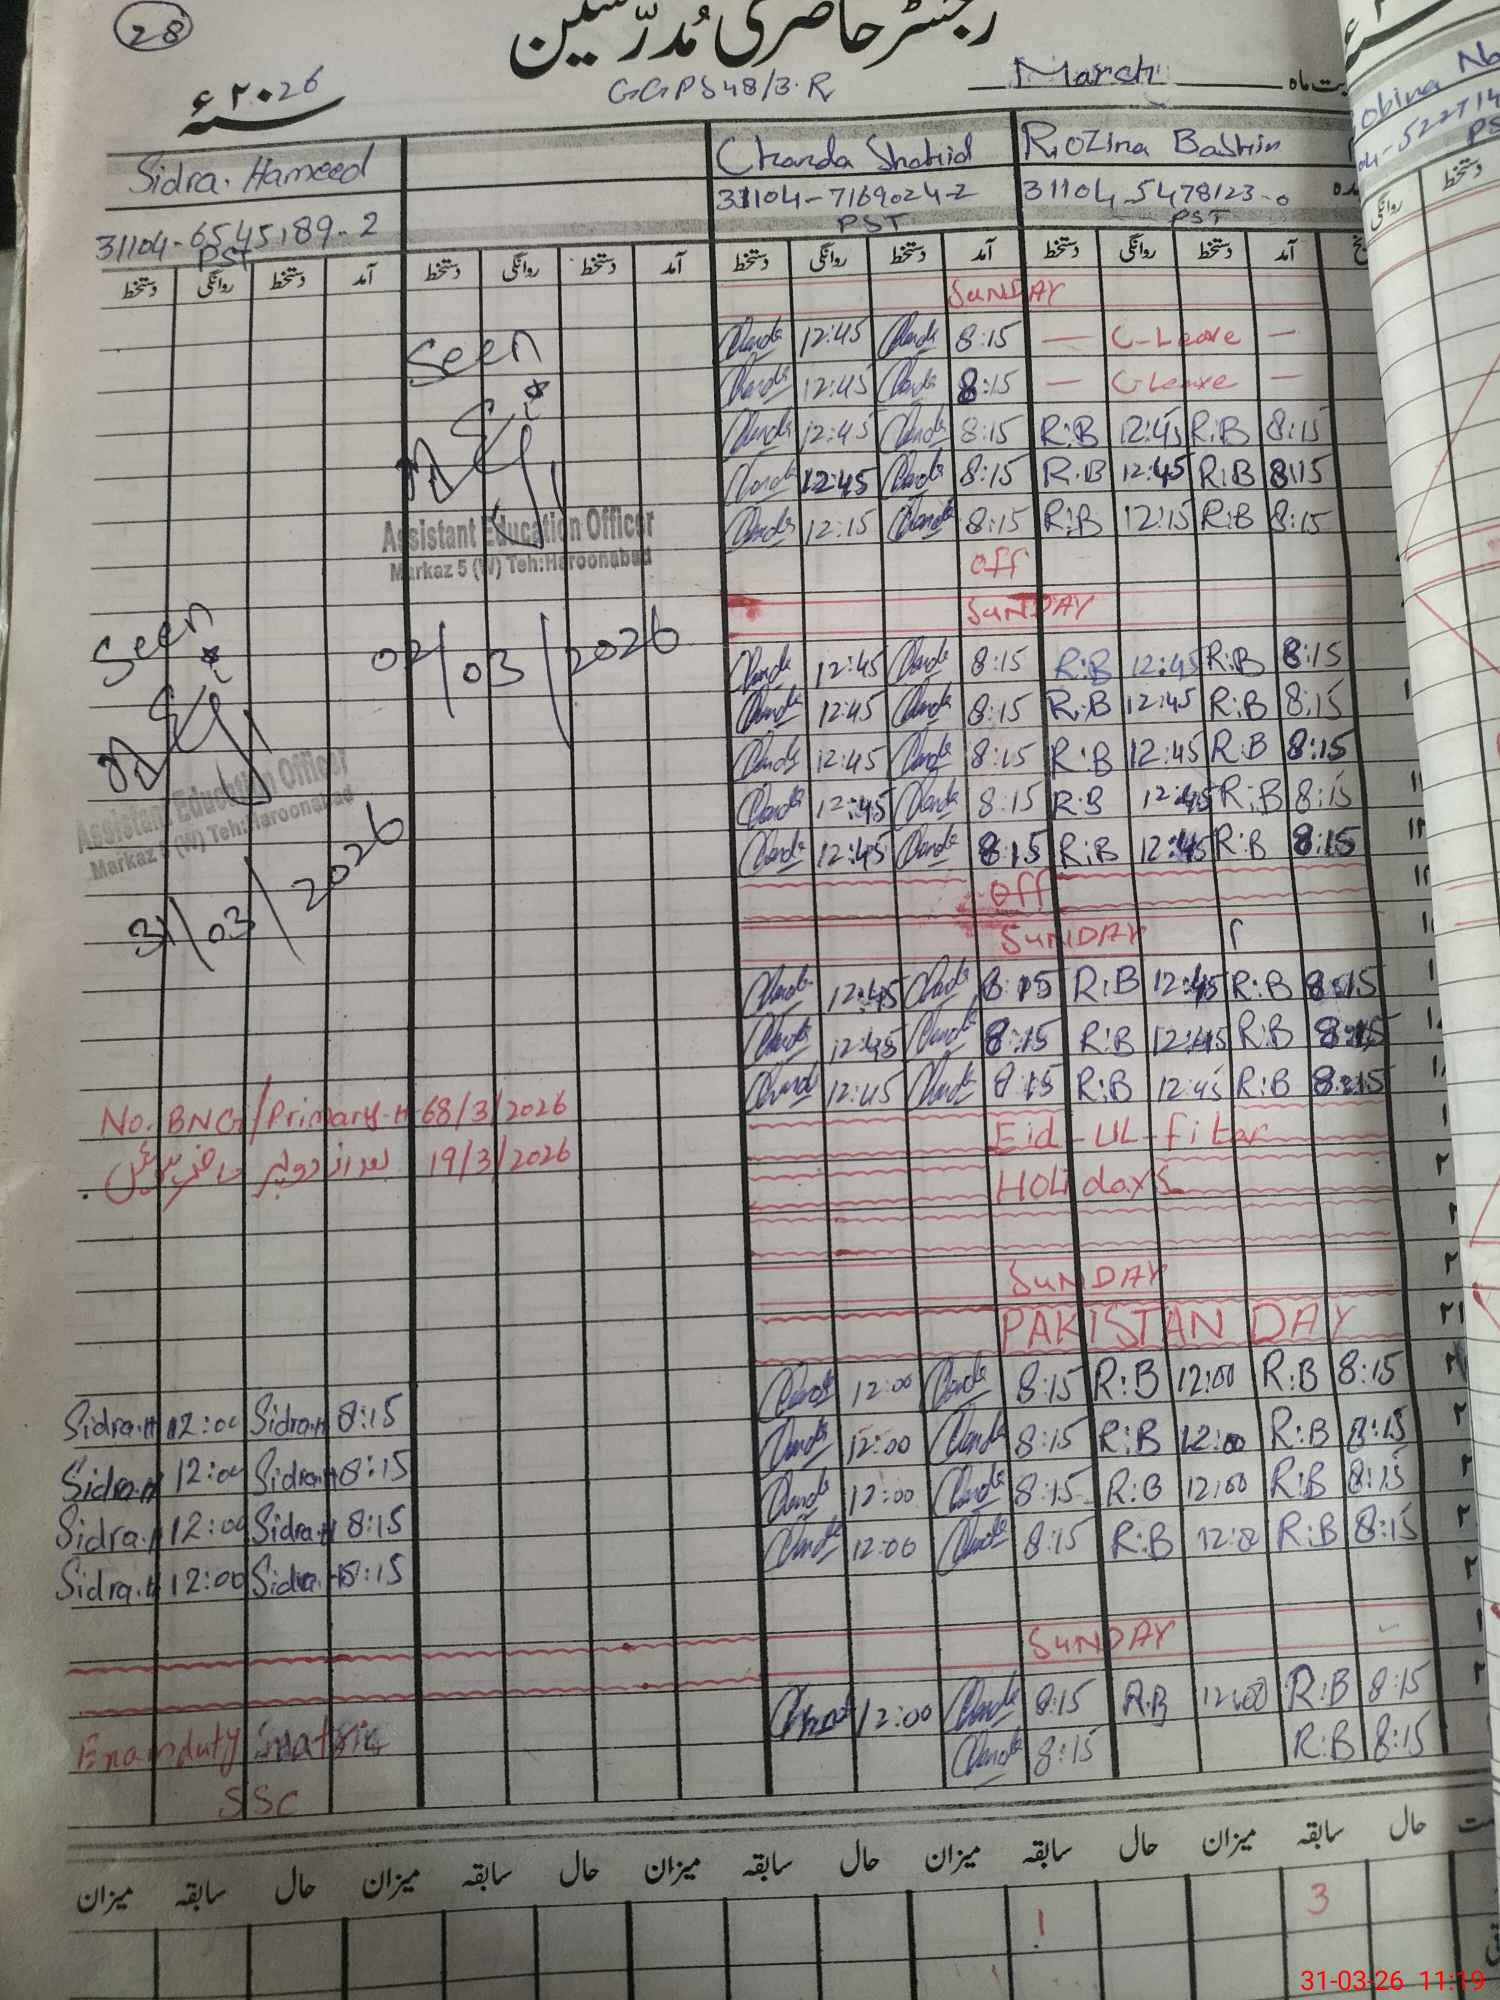 28
رجسٹر حاضری مُدرّسین
۲۰26ء
GGPS 48/3.R
Marsch بت ماہ
Sidra. Hameed Chanda Shahid Rozina Bashir
31104-6545189-2 31104-7169024-2 31104-5478123-0
PST PST PST
دستخط روانگی دستخط آمد دستخط روانگی دستخط آمد دستخط روانگی دستخط آمد دستخط روانگی دستخط آمد
SUNDAY
Chanda 12:45 Chanda 8:15 — C-Leave —
Chanda 12:45 Chanda 8:15 — C-Leave —
Chanda 12:45 Chanda 8:15 R:B 12:45 R:B 8:15
Chanda 12:45 Chanda 8:15 R.B 12:45 R:B 8:15
Chanda 12:15 Chanda 8:15 R:B 12:15 R:B 8:15
off
SUNDAY
Chanda 12:45 Chanda 8:15 R:B 12:45 R:B 8:15
Chanda 12:45 Chanda 8:15 R:B 12:45 R:B 8:15
Chanda 12:45 Chanda 8:15 R:B 12:45 R:B 8:15
Chanda 12:45 Chanda 8:15 R:B 12:45 R:B 8:15
Chanda 12:45 Chanda 8:15 R:B 12:45 R:B 8:15
off
SUNDAY
Chanda 12:45 Chanda 8:15 R:B 12:45 R:B 8:15
Chanda 12:45 Chanda 8:15 R:B 12:45 R:B 8:15
Chanda 12:45 Chanda 8:15 R:B 12:45 R:B 8:15
Eid-UL-fiter
Holidays
SUNDAY
PAKISTAN DAY
Sidra.H 12:00 Sidra.H 8:15 Chanda 12:00 Chanda 8:15 R:B 12:00 R:B 8:15
Sidra.H 12:00 Sidra.H 8:15 Chanda 12:00 Chanda 8:15 R:B 12:00 R:B 8:15
Sidra.H 12:00 Sidra.H 8:15 Chanda 12:00 Chanda 8:15 R:B 12:00 R:B 8:15
Sidra.H 12:00 Sidra.H 8:15 Chanda 12:00 Chanda 8:15 R:B 12:0 R:B 8:15
SUNDAY
Chanda 12:00 Chanda 8:15 R.B 12:00 R:B 8:15
Chanda 8:15 R:B 8:15
Seen
Assistant Education Officer
Markaz 5 (W) Teh:Haroonabad
02/03/2026
Seen
Assistant Education Officer
Markaz 5 (W) Teh:Haroonabad
31/03/2026
No. BNG/Primary-H 68/3/2026
بعد از دوپہر 19/3/2026
Exam duty matric
SSC
میزان سابقہ حال میزان سابقہ حال میزان سابقہ حال میزان سابقہ حال میزان سابقہ حال
1 3
31-03-26 11:19